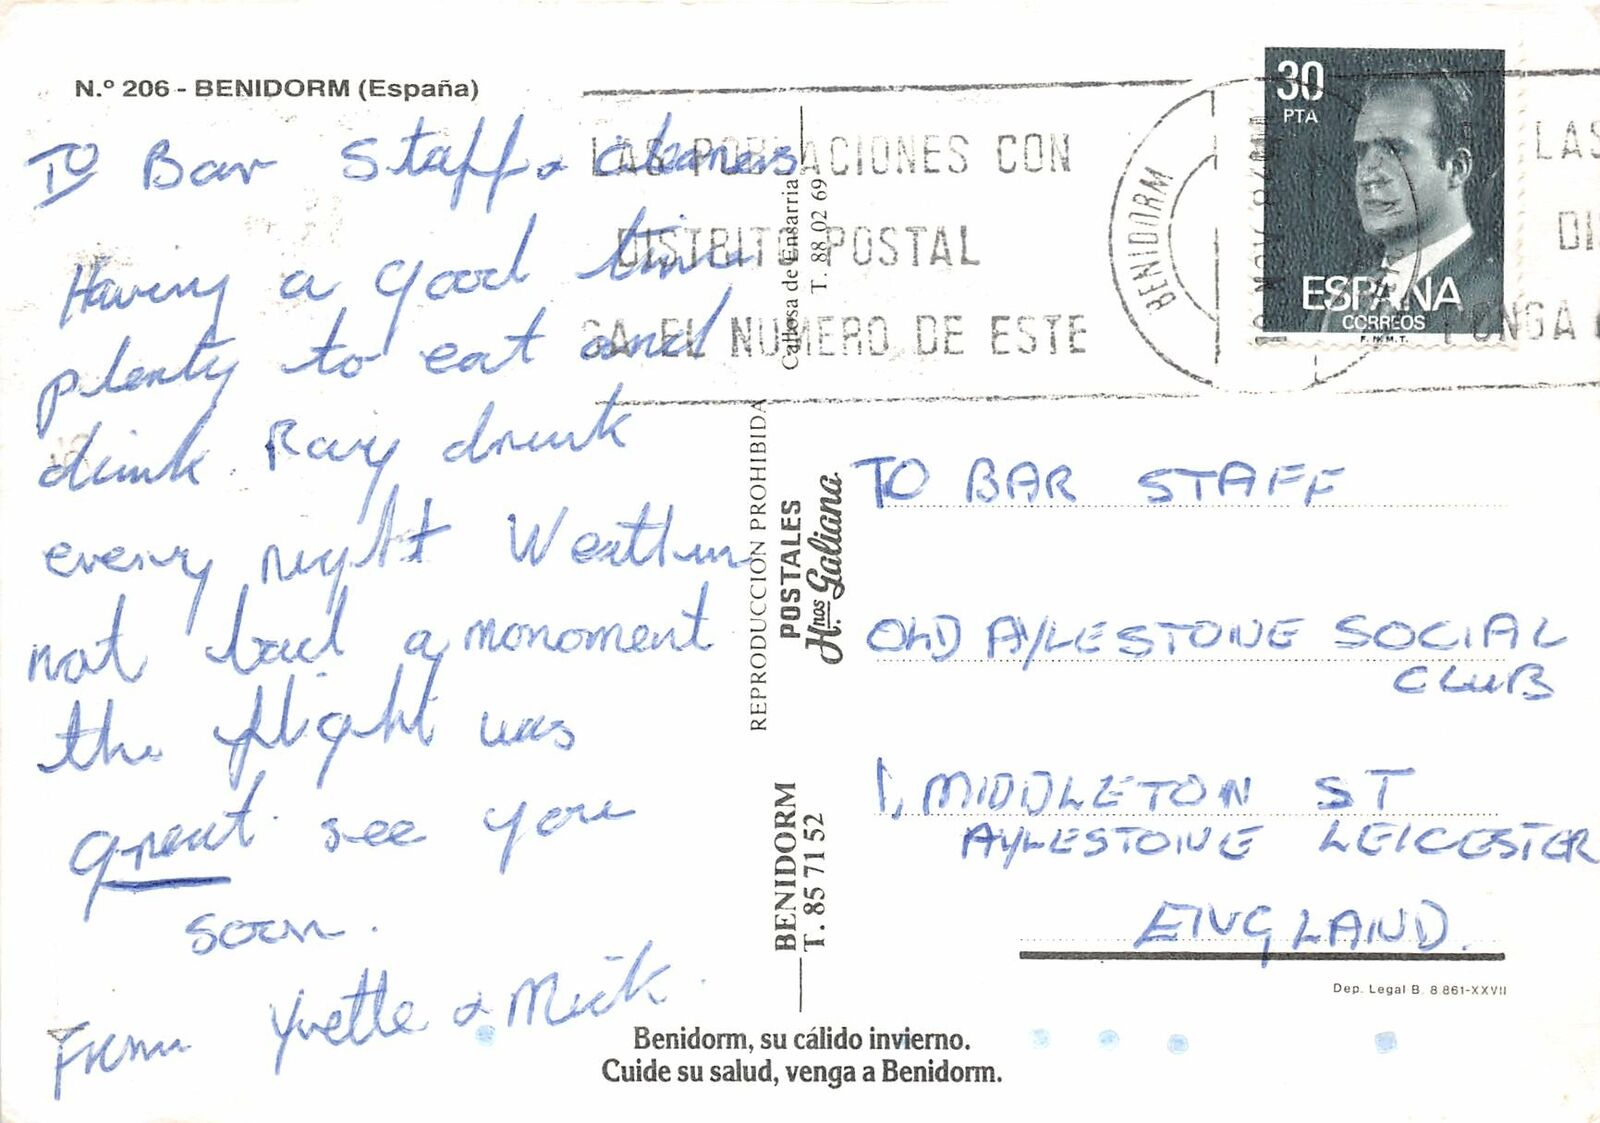 N.º 206 - BENIDORM (España)
To Bar Staff & cleaners
Having a good time
plenty to eat and
drink. Ray drunk
every night Weather
not bad a monoment
the flight was
great. see you
soon.
From Yvette & Mick.
LAS POBLACIONES CON
DISTRITO POSTAL
GA EL NUMERO DE ESTE
BENIDORM
30
PTA
ESPAÑA
CORREOS
F.N.M.T.
LAS
DI
PONGA
Callosa de Ensarria
T. 88 02 69
REPRODUCCION PROHIBIDA
POSTALES
Hnos. Galiana
BENIDORM
T. 85 71 52
TO BAR STAFF
OLD AYLESTONE SOCIAL
CLUB
1, MIDDLETON ST
AYLESTONE LEICESTER
ENGLAND.
Dep. Legal B. 8.861-XXVII
Benidorm, su cálido invierno.
Cuide su salud, venga a Benidorm.